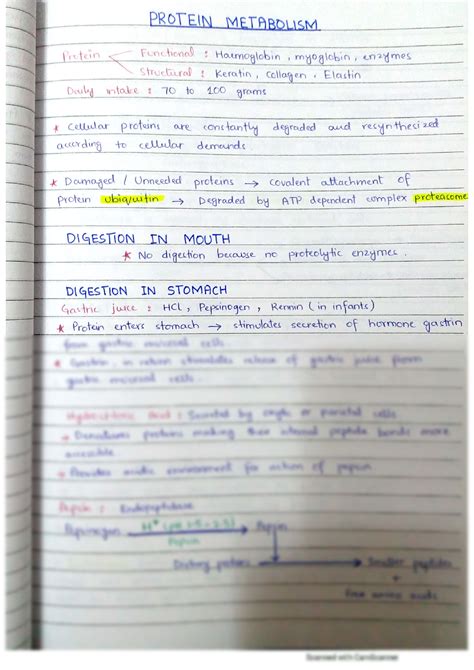 PROTEIN METABOLISM
Protein Functional : Haemoglobin, myoglobin, enzymes
Structural : Keratin, Collagen, Elastin
Daily intake : 70 to 100 grams
* Cellular proteins are constantly degraded and resynthesized
according to cellular demands
* Damaged / Unneeded proteins → covalent attachment of
protein ubiquitin → Degraded by ATP dependent complex proteasome
DIGESTION IN MOUTH
* No digestion because no proteolytic enzymes.
DIGESTION IN STOMACH
Gastric juice : HCl, Pepsinogen, Rennin (in infants)
* Protein enters stomach → stimulates secretion of hormone gastrin
from gastric mucosal cells.
* Gastrin, in return stimulates release of gastric juice from
gastric mucosal cells.
Hydrochloric acid : Secreted by or parietal cells
→ Denatures proteins making their internal peptide bonds more
accessible
→ Provides acidic environment for action of pepsin
Pepsin : Endopeptidase
Pepsinogen H⁺ (pH 1.5-2.5) Pepsin
Pepsin
Dietary protein → Smaller peptides
+
free amino acids
Scanned with CamScanner